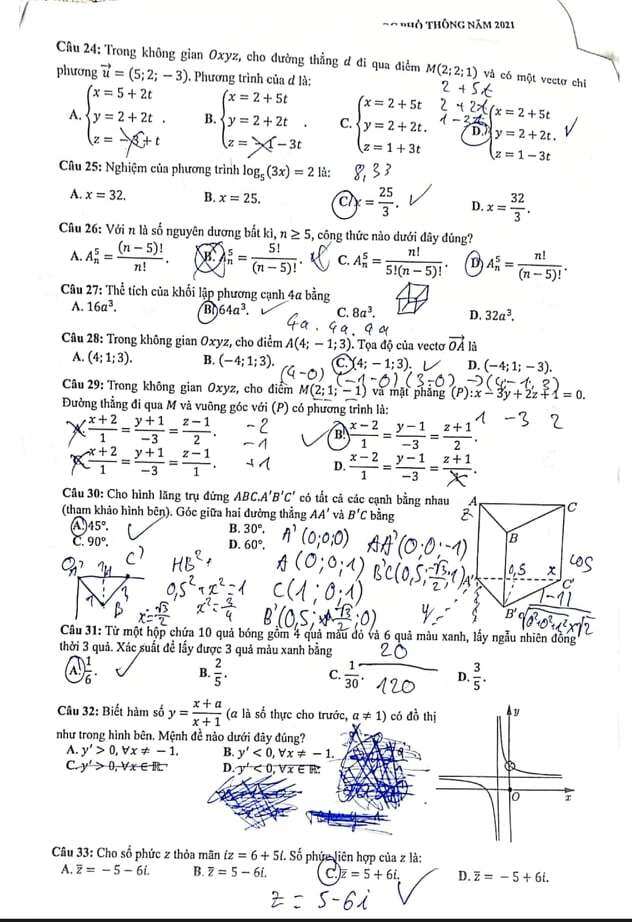 THÔNG NĂM 2021
Câu 24: Trong không gian Oxyz, cho đường thẳng d đi qua điểm M(2; 2; 1) và có một vectơ chỉ
phương u⃗ = (5; 2; −3). Phương trình của d là:
2 + 5t
A. {x = 5 + 2t B. {x = 2 + 5t C. {x = 2 + 5t D. {x = 2 + 5t
y = 2 + 2t . y = 2 + 2t . y = 2 + 2t. y = 2 + 2t.
z = −3 + t z = −1 − 3t z = 1 + 3t z = 1 − 3t
2 + 2t
Câu 25: Nghiệm của phương trình log₅(3x) = 2 là: 8,33
A. x = 32. B. x = 25. C. x = 25/3. D. x = 32/3.
Câu 26: Với n là số nguyên dương bất kì, n ≥ 5, công thức nào dưới đây đúng?
A. A⁵ₙ = (n − 5)!/n!. B. A⁵ₙ = 5!/(n − 5)!. C. A⁵ₙ = n!/5!(n − 5)!. D. A⁵ₙ = n!/(n − 5)!.
Câu 27: Thể tích của khối lập phương cạnh 4a bằng
A. 16a³. B. 64a³. C. 8a³. D. 32a³.
4a . 4a . 4a
Câu 28: Trong không gian Oxyz, cho điểm A(4; −1; 3). Tọa độ của vectơ OA⃗ là
A. (4; 1; 3). B. (−4; 1; 3). C. (4; −1; 3). D. (−4; 1; −3).
(4-0) (-1-0) (3-0) → (4, -1, 3)
Câu 29: Trong không gian Oxyz, cho điểm M(2; 1; −1) và mặt phẳng (P): x − 3y + 2z + 1 = 0.
Đường thẳng đi qua M và vuông góc với (P) có phương trình là: 1 -3 2
A. (x + 2)/1 = (y + 1)/−3 = (z − 1)/2. -2 B. (x − 2)/1 = (y − 1)/−3 = (z + 1)/2.
-1
(x + 2)/1 = (y + 1)/−3 = (z − 1)/1. +1 D. (x − 2)/1 = (y − 1)/−3 = (z + 1)/1.
Câu 30: Cho hình lăng trụ đứng ABC.A′B′C′ có tất cả các cạnh bằng nhau
(tham khảo hình bên). Góc giữa hai đường thẳng AA′ và B′C bằng
A. 45°. B. 30°. A'(0;0;0) AA'(0;0;-1)
C. 90°. D. 60°. A(0;0;1)
HB²+
0,5² + x² = 1 C(1;0;1)
x² = 3/4
x = √3/2
A C B 0,5 x A' C' B' cos
Câu 31: Từ một hộp chứa 10 quả bóng gồm 4 quả màu đỏ và 6 quả màu xanh, lấy ngẫu nhiên đồng
thời 3 quả. Xác suất để lấy được 3 quả màu xanh bằng 20
A. 1/6. B. 2/5. C. 1/30. 120 D. 3/5.
Câu 32: Biết hàm số y = (x + a)/(x + 1) (a là số thực cho trước, a ≠ 1) có đồ thị
như trong hình bên. Mệnh đề nào dưới đây đúng?
A. y′ > 0, ∀x ≠ −1. B. y′ < 0, ∀x ≠ −1.
C. y′ > 0, ∀x ∈ ℝ. D. y′ < 0, ∀x ∈ ℝ.
y
O x
Câu 33: Cho số phức z thỏa mãn iz = 6 + 5i. Số phức liên hợp của z là:
A. z̄ = −5 − 6i. B. z̄ = 5 − 6i. C. z̄ = 5 + 6i. D. z̄ = −5 + 6i.
z = 5-6i